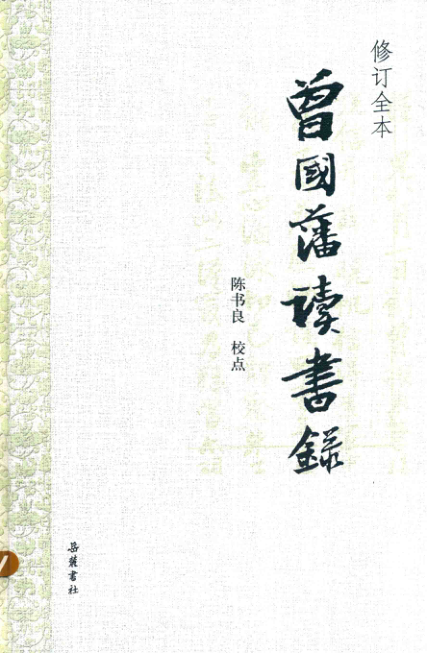 修订全本
曾國藩读書録
陈书良 校点
岳麓書社